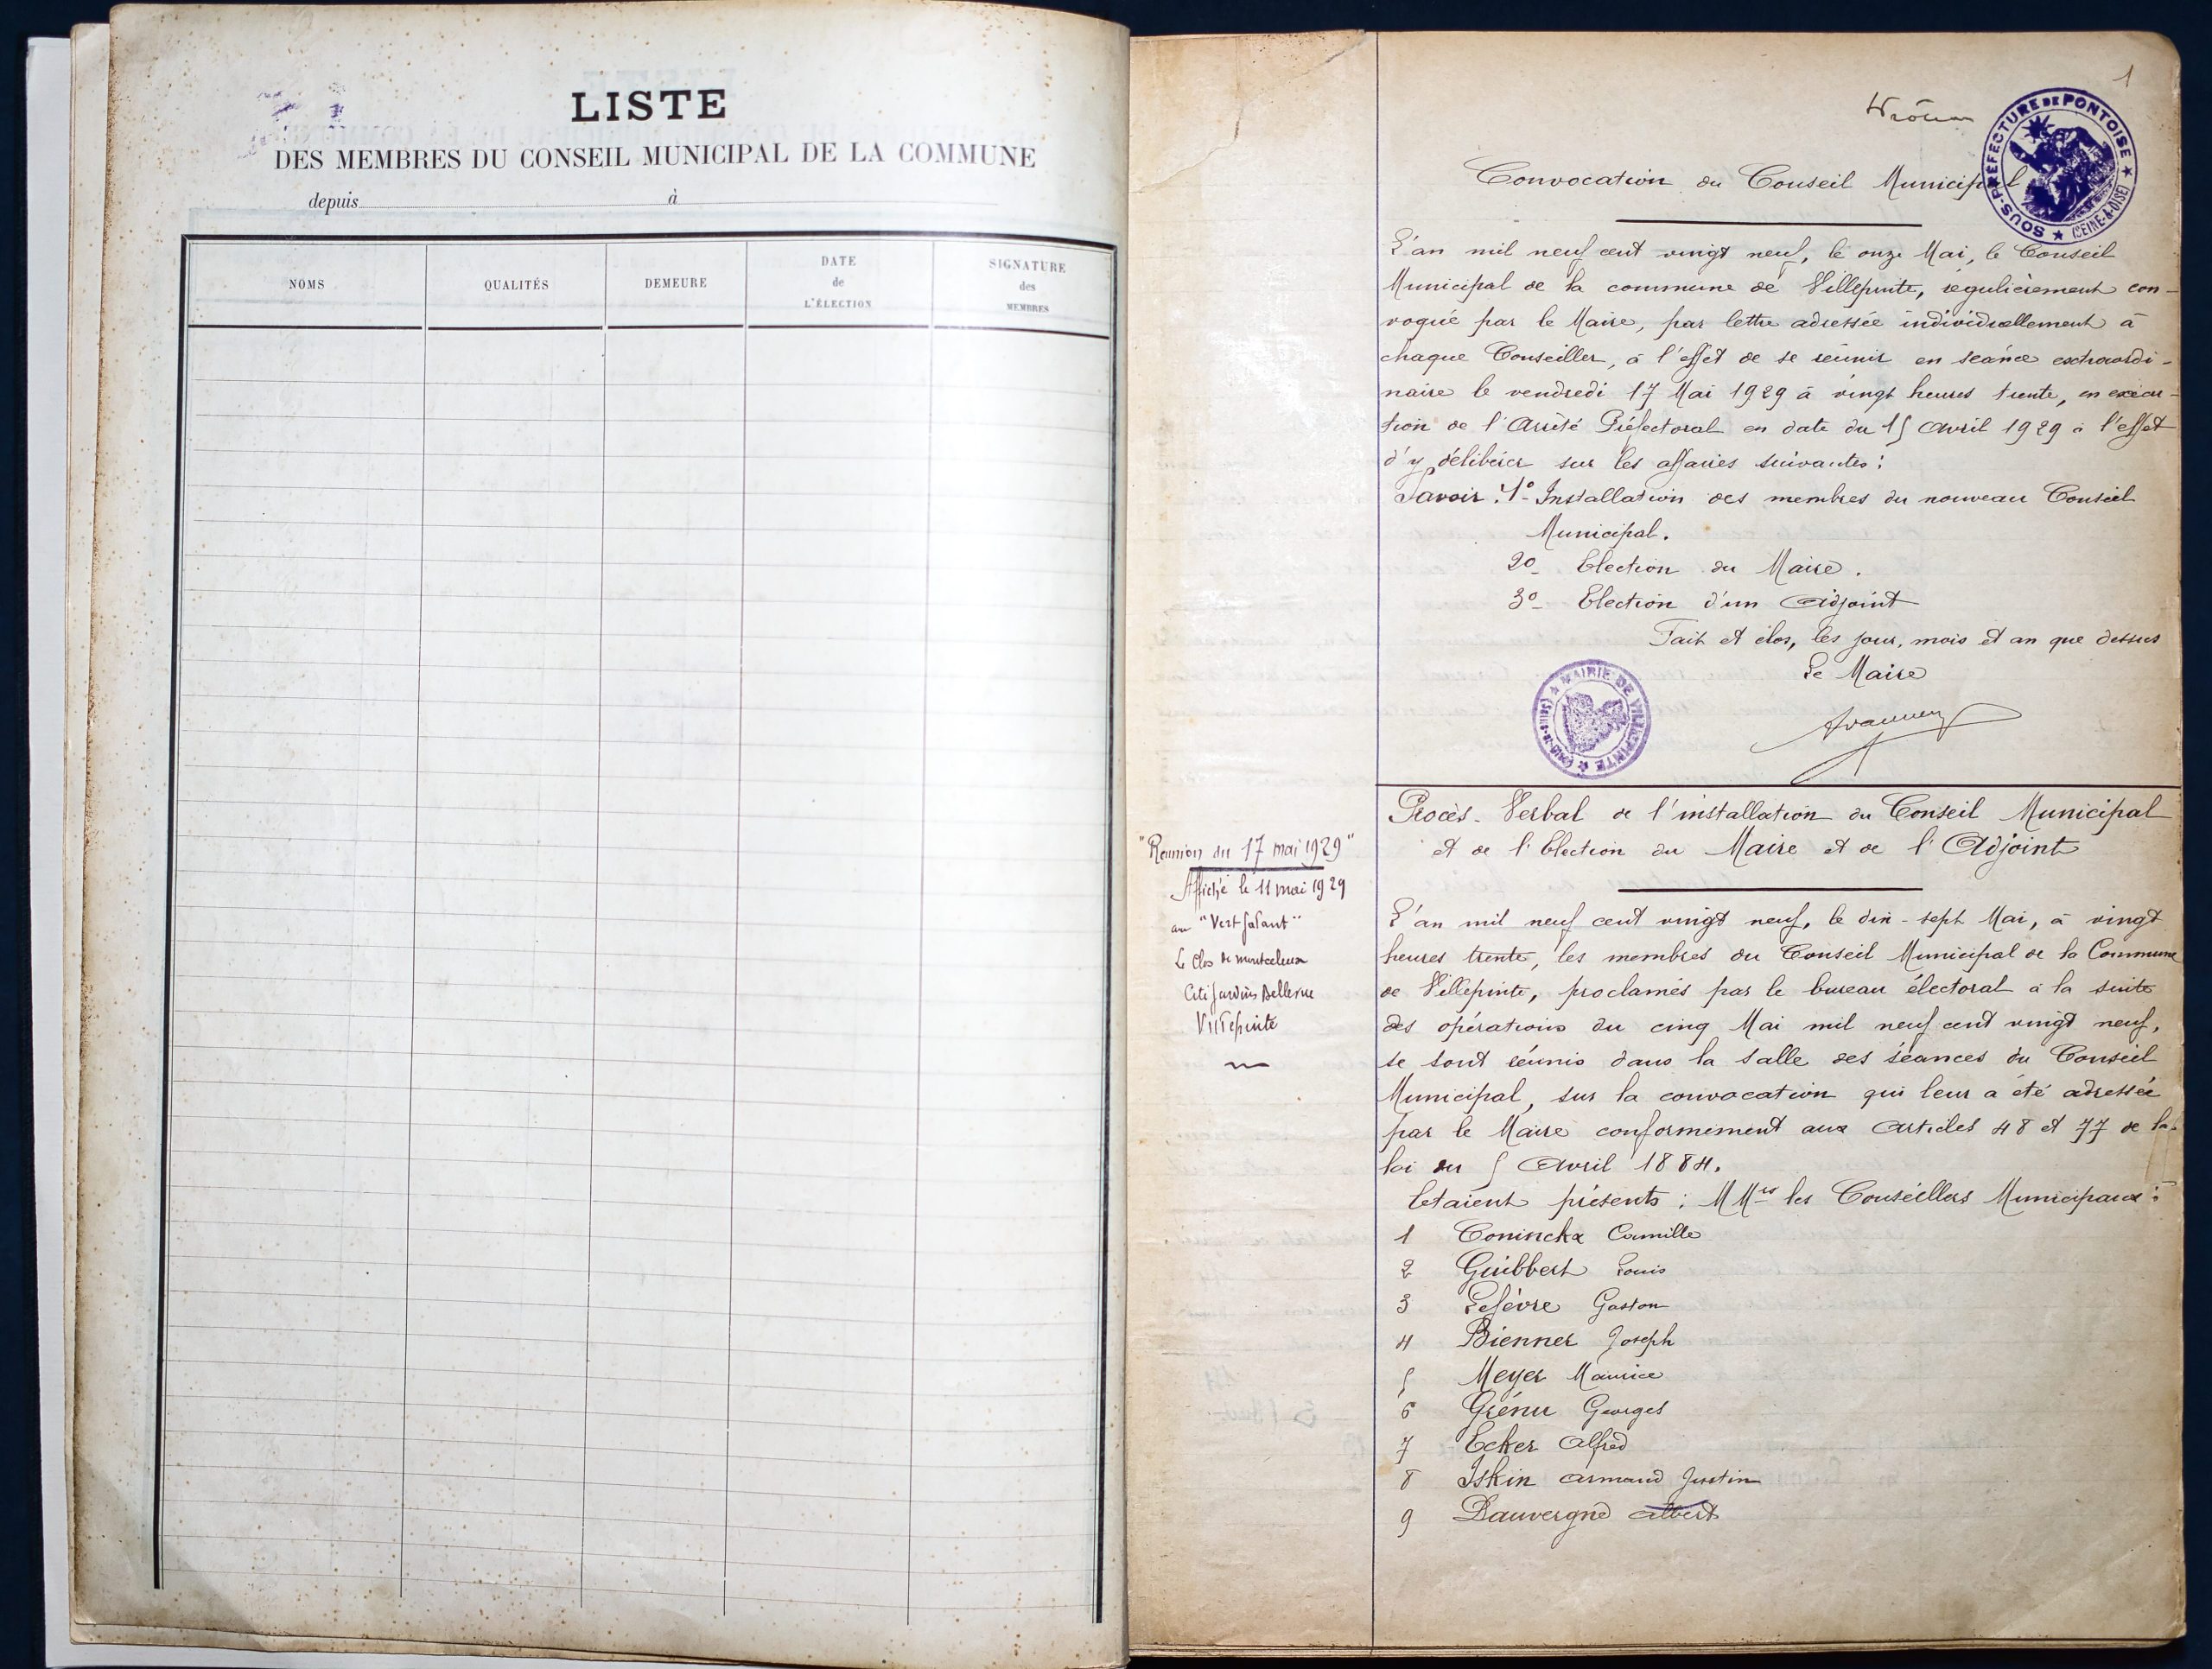 LISTE
DES MEMBRES DU CONSEIL MUNICIPAL DE LA COMMUNE
depuis à
NOMS
QUALITÉS
DEMEURE
DATE
de
L'ÉLECTION
SIGNATURE
des
MEMBRES
1
SOUS-PRÉFECTURE DE PONTOISE (SEINE-&-OISE)
Convocation du Conseil Municipal
L'an mil neuf cent vingt neuf, le onze Mai, le Conseil
Municipal de la commune de Villepinte, régulièrement con-
voqué par le Maire, par lettre adressée individuellement à
chaque Conseiller, à l'effet de se réunir en séance extraordi-
naire le vendredi 17 Mai 1929 à vingt heures trente, en exécu-
tion de l'Arrêté Préfectoral en date du 15 Avril 1929 à l'effet
d'y délibérer sur les affaires suivantes :
Savoir : 1º- Installation des membres du nouveau Conseil
Municipal.
2º- Election du Maire.
3º- Election d'un Adjoint
Fait et clos, les jour, mois et an que dessus
Le Maire
MAIRIE DE VILLEPINTE
Procès-Verbal de l'installation du Conseil Municipal
et de l'Election du Maire et de l'Adjoint
"Reunion du 17 mai 1929"
Affiché le 11 mai 1929
au "Vert Galant"
Le Clos de montceleux
Cité Jardins Bellevue
Villepinte
L'an mil neuf cent vingt neuf, le dix-sept Mai, à vingt
heures trente, les membres du Conseil Municipal de la Commune
de Villepinte, proclamés par le bureau électoral à la suite
des opérations du cinq Mai mil neuf cent vingt neuf,
se sont réunis dans la salle des séances du Conseil
Municipal, sur la convocation qui leur a été adressée
par le Maire conformément aux Articles 48 et 77 de la
loi du 5 Avril 1884.
Etaient présents : MMrs les Conseillers Municipaux :
1 Coninckx Camille
2 Guibbert Louis
3 Lefèvre Gaston
4 Bienner Joseph
5 Meyer Maurice
6 Grénu Georges
7 Ecker Alfred
8 Iskin Armand Justin
9 Dauvergne Albert